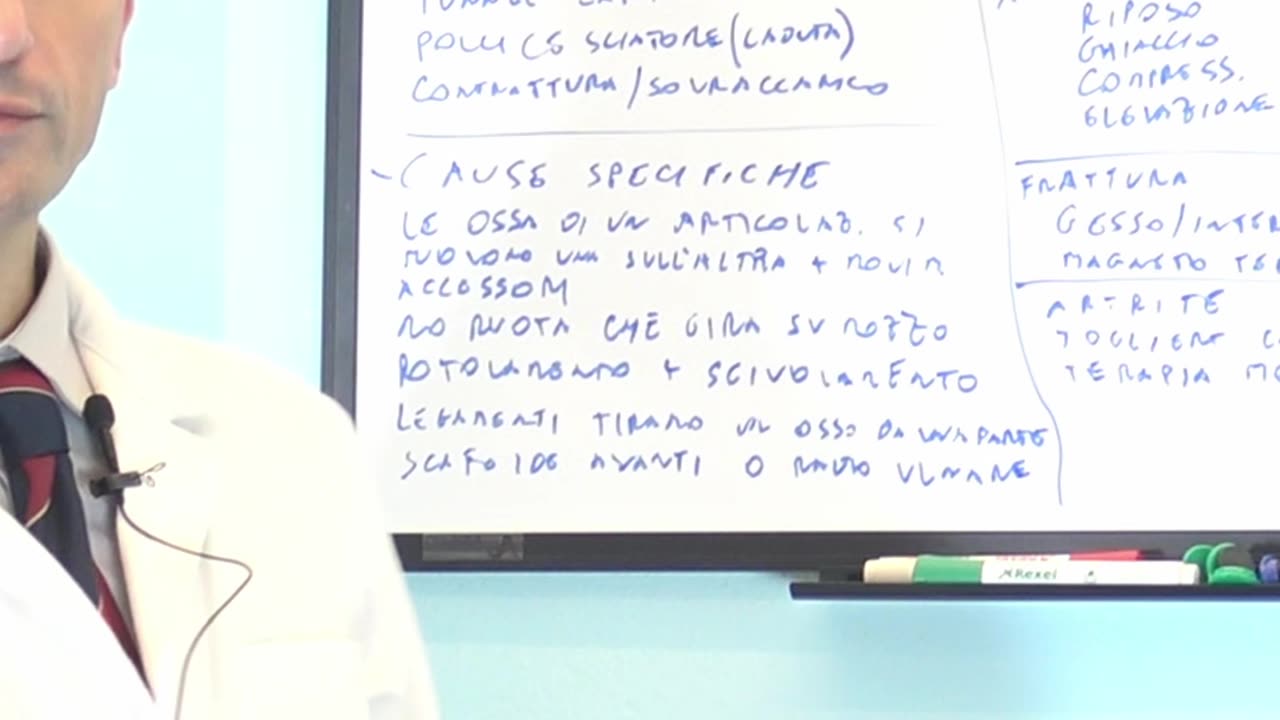 POLLICE SCIATORE (CADUTA)
CONTRATTURA/SOVRACCARICO
- CAUSE SPECIFICHE
LE OSSA DI UN ARTICOLAZ. SI
MUOVONO UNA SULL'ALTRA + MOVIM
ACCESSORI
NO RUOTA CHE GIRA SU MOZZO
ROTOLAMENTO + SCIVOLAMENTO
LEGAMENTI TIRANO UN OSSO DA UNA PARTE
SCAFOIDE AVANTI O RADIO ULNARE
RIPOSO
GHIACCIO
COMPRESS.
ELEVAZIONE
FRATTURA
GESSO/
MAGNETO
ARTRITE
TOGLIERE
TERAPIA
Rexel